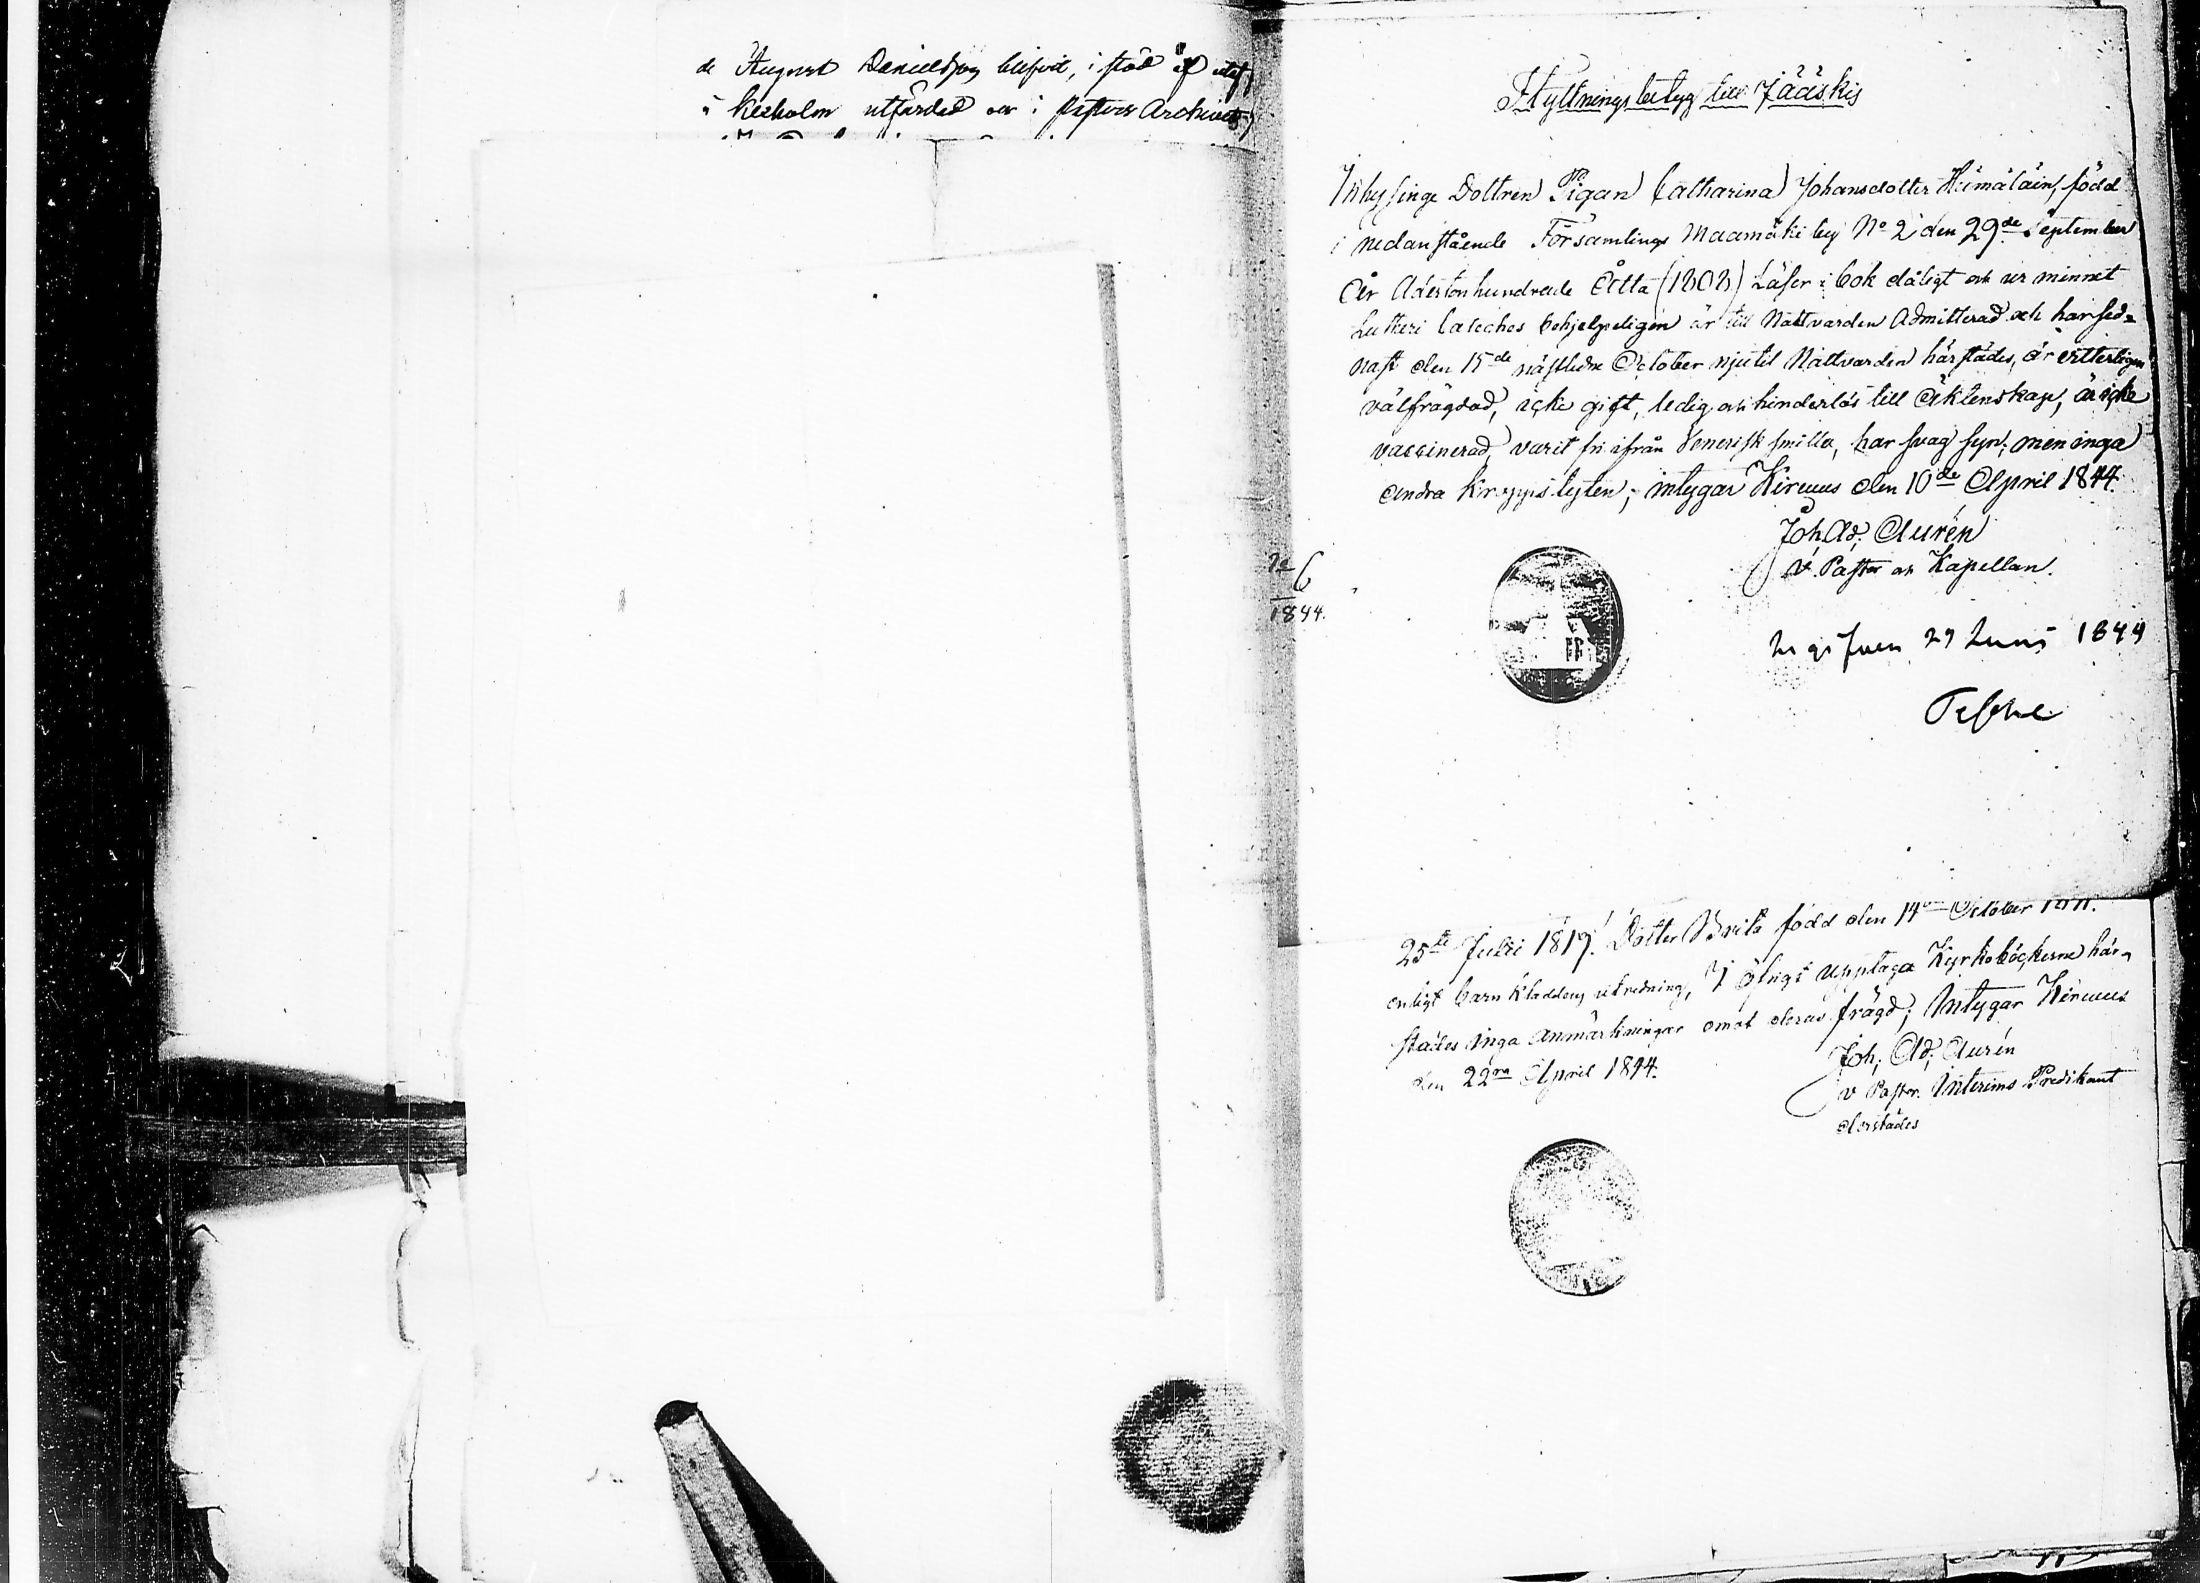 de August Danielsson blifvit, i stöd af
i Kexholm utfärdad och i Pastors Archivet
Flyttningsbetyg till Jääskis
Inhysinge Dottren Pigan Catharina Johansdotter Hämäläin, född
i nedanstående Församlings Maamäki by No 2 den 29de September
år Adertonhundrade Åtta (1808) Läser i bok dåligt och ur minnet
Lutheri Cateches behjelpeligen är till Nattvarden Admitterad och har sed=
nast den 15de nästledne October njutit Nattvarden härstädes, är vitterligen
välfrägdad, icke gift, ledig och hinderlös till Äktenskap, är icke
vaccinerad, varit fri ifrån Venerisk smitta, har svag syn; men inga
andra kroppslyten; intygar Kirvus den 10de April 1844.
Joh. Ad. Aurén
V. Pastor och Kapellan.
6
1844.
Uppgifven 29 Juni 1844
25te Julii 1819. Dotter Brita född den 14de October
enligt barn kladdens utredning, I öfrigt upptaga Kyrkoböckerne här=
städes inga anmärkningar emot deras frägd; Intygar Kirvus
den 22ra April 1844.
Joh; Ad; Aurén
v Pastor. Interims Predikant
derstädes